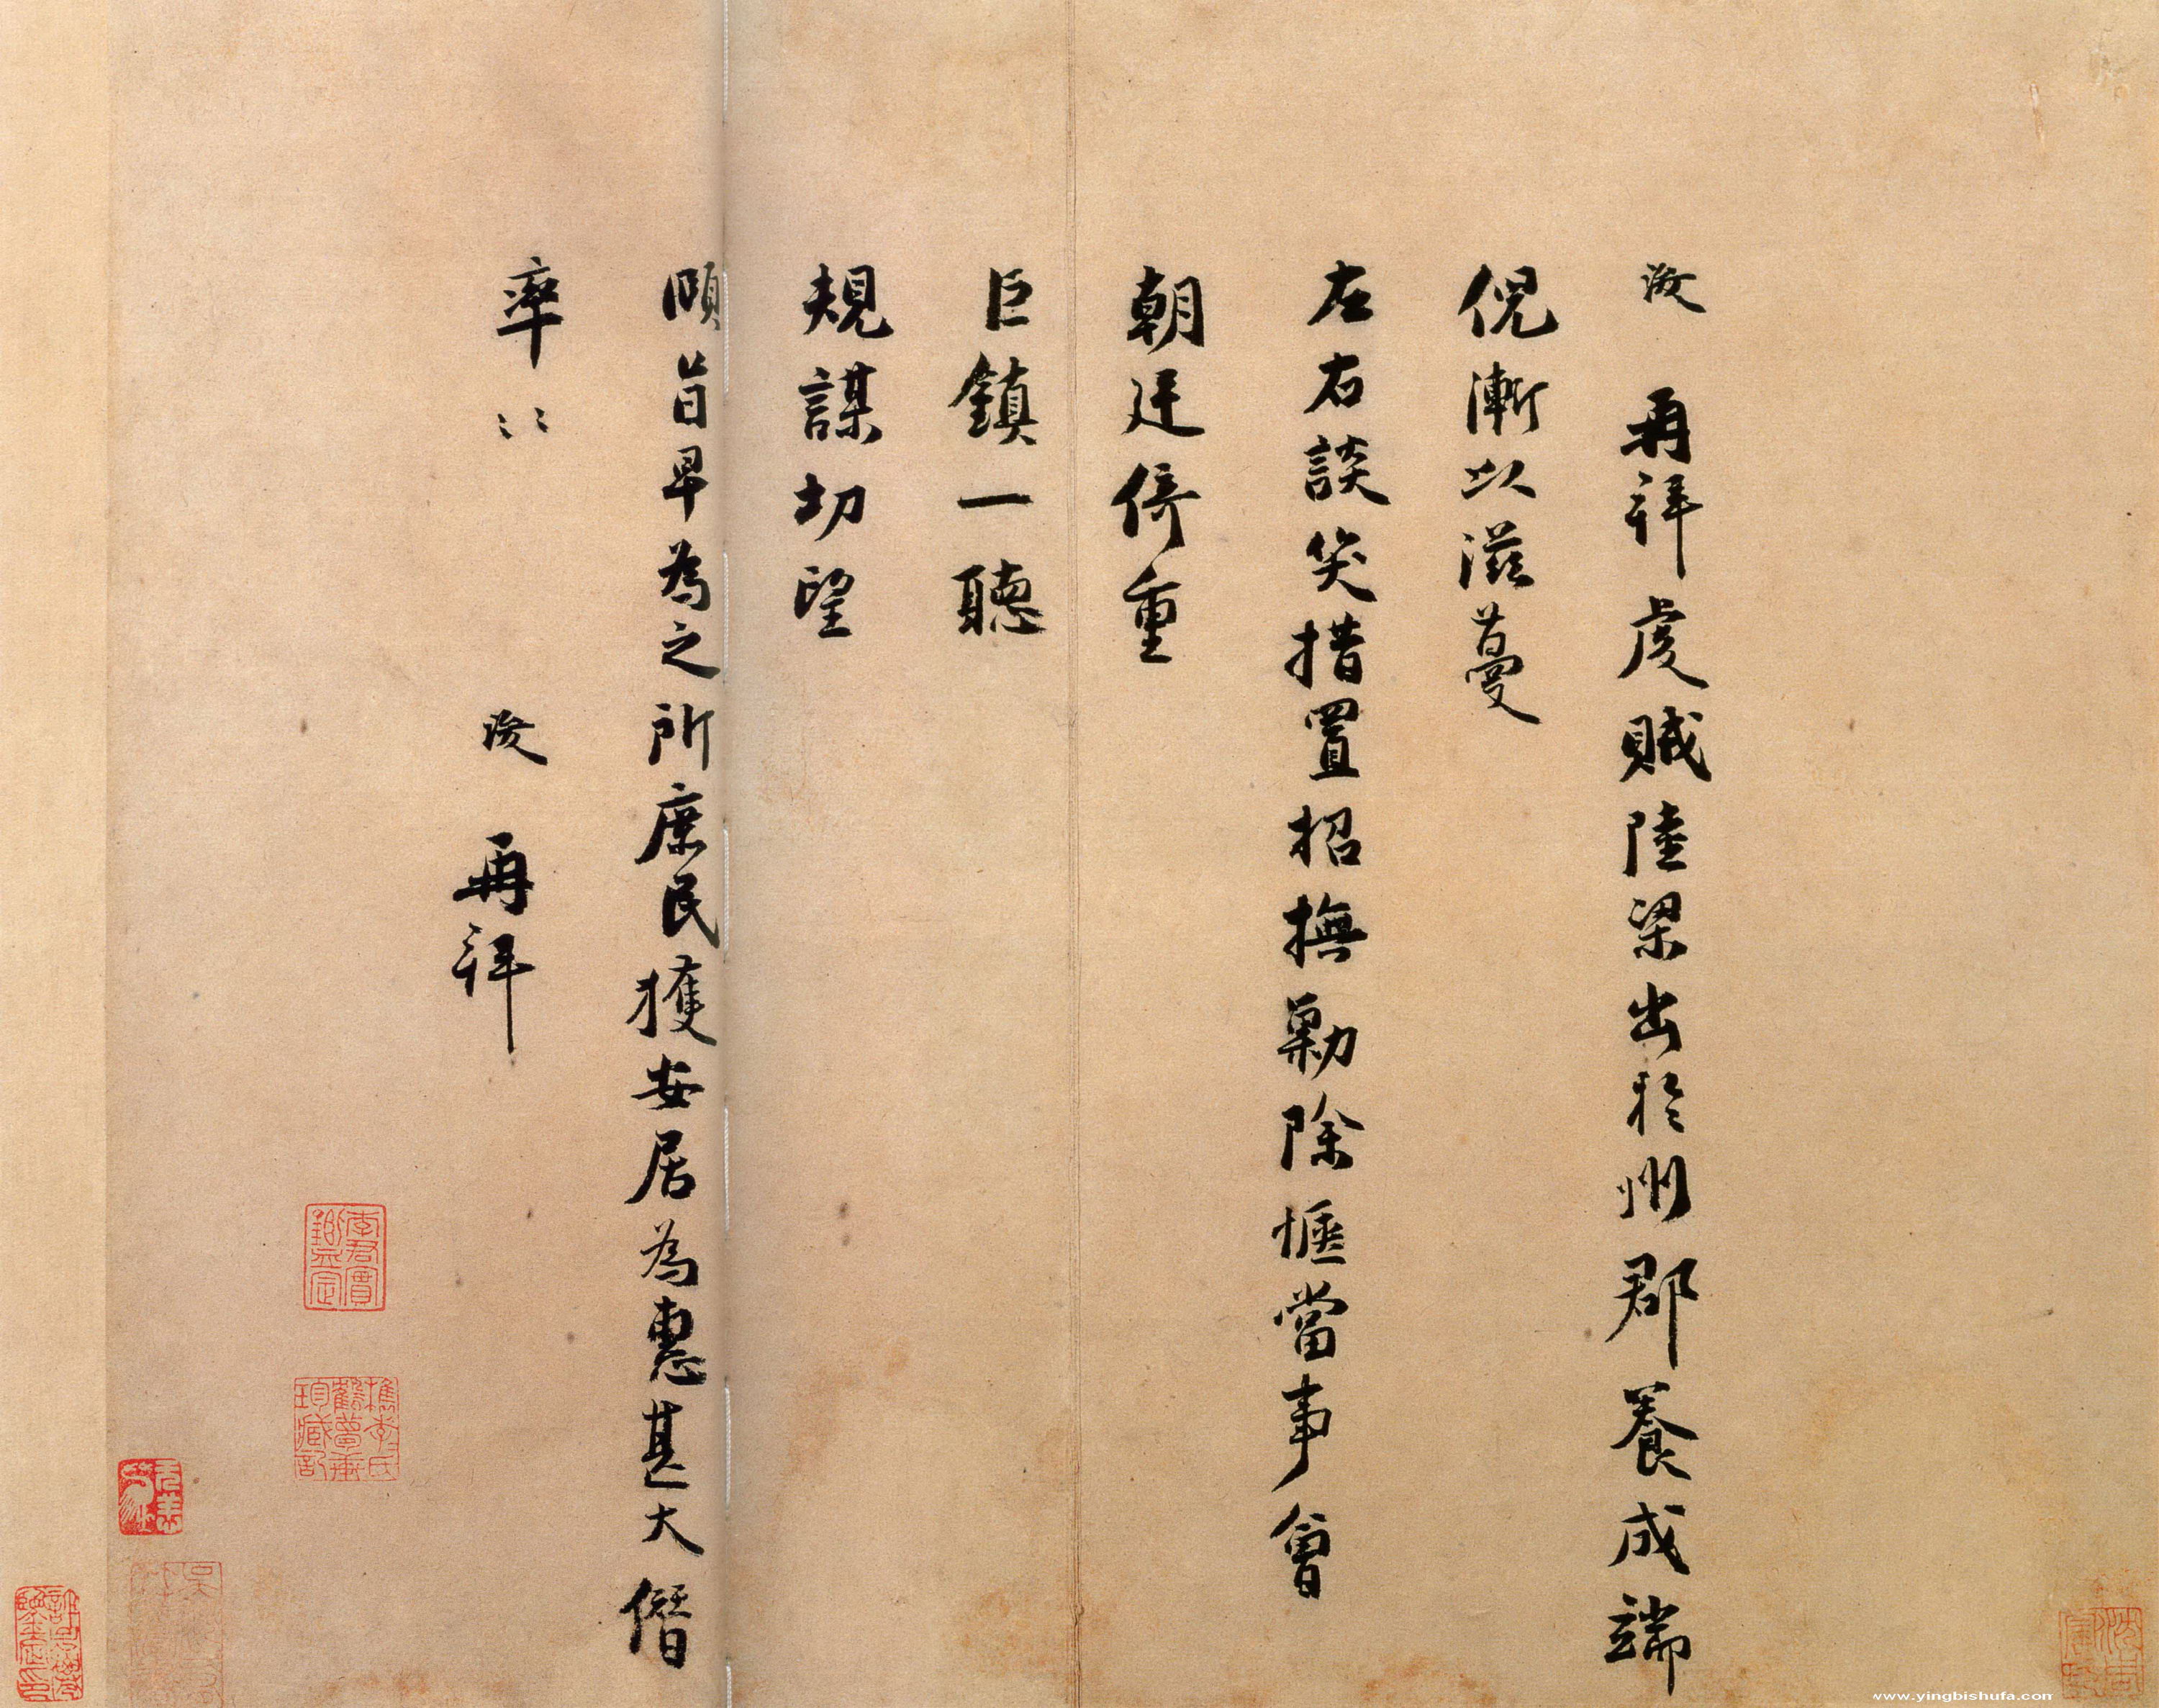 浚 再拜虔賊陸梁出於州郡養成端
倪漸以滋蔓
左右談笑措置招撫勦除愜當事會
朝廷倚重
巨鎮一聽
規謀切望
頤旨早為之所庶民獲安居為惠甚大僭
率〻 浚 再拜
李君實鑒定
檇李李氏鶴夢軒珍藏記
www.yingbishufa.com